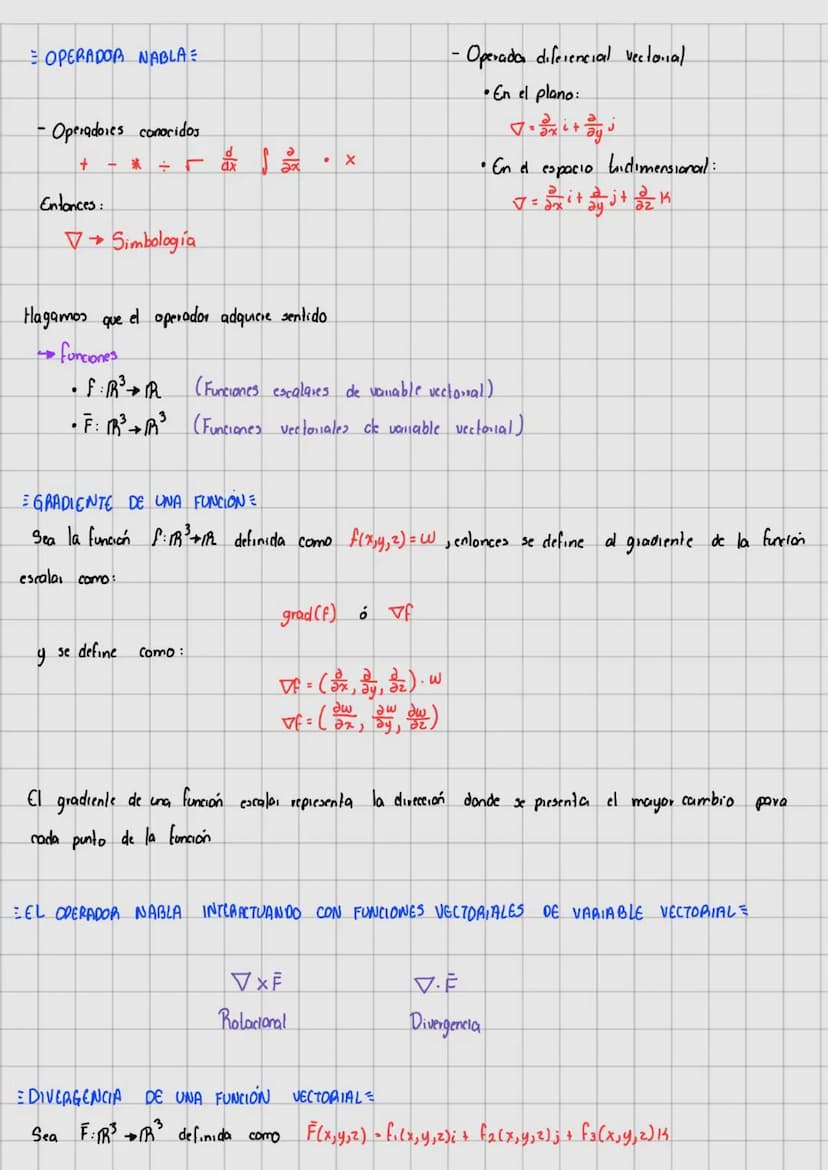 ≡ OPERADOR NABLA ≡
- Operadores conocidos
+ - * ÷ √ d/dx ∫ ∂/∂x · x
Entonces:
∇ → Simbología
- Operador diferencial vectorial
• En el plano:
∇ = ∂/∂x i + ∂/∂y j
• En el espacio tridimensional:
∇ = ∂/∂x i + ∂/∂y j + ∂/∂z k
Hagamos que el operador adquiere sentido
→ funciones
• f: ℝ³→ℝ (Funciones escalares de variable vectorial)
• F̄: ℝ³→ℝ³ (Funciones vectoriales de variable vectorial)
≡ GRADIENTE DE UNA FUNCIÓN ≡
Sea la función f: ℝ³→ℝ definida como f(x,y,z) = w, entonces se define al gradiente de la función
escalar como:
grad(f) ó ∇f
y se define como:
∇f = (∂/∂x, ∂/∂y, ∂/∂z) · w
∇f = (∂w/∂x, ∂w/∂y, ∂w/∂z)
El gradiente de una función escalar representa la dirección donde se presenta el mayor cambio para
cada punto de la función
≡ EL OPERADOR NABLA INTERACTUANDO CON FUNCIONES VECTORIALES DE VARIABLE VECTORIAL ≡
∇ x F̄ ∇ · F̄
Rotacional Divergencia
≡ DIVERGENCIA DE UNA FUNCIÓN VECTORIAL ≡
Sea F̄: ℝ³→ℝ³ definida como F̄(x,y,z) = f₁(x,y,z)i + f₂(x,y,z)j + f₃(x,y,z)k